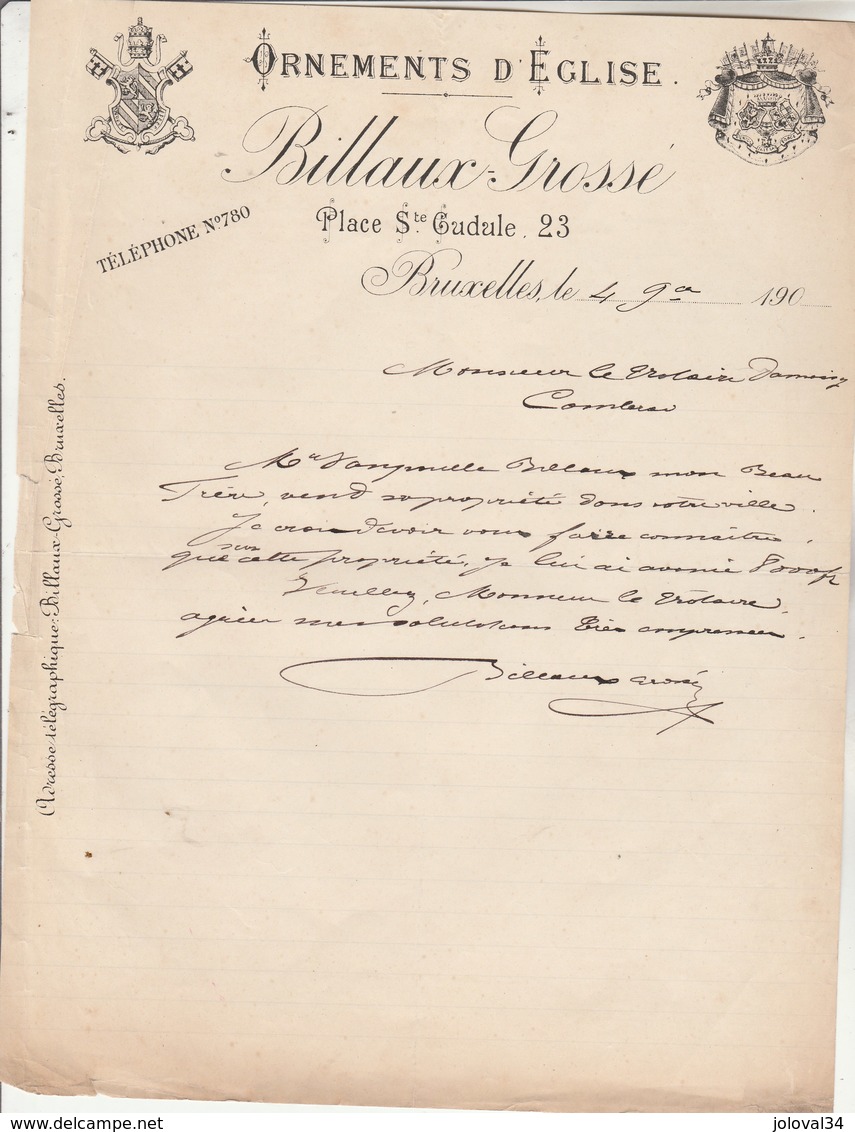 ORNEMENTS D'ÉGLISE.
Billaux-Grossé
Place Ste Gudule, 23
TÉLÉPHONE No 780
Bruxelles, le 4 9a 190
Adresse télégraphique: Billaux-Grossé, Bruxelles.
Monsieur le Notaire
Mr Billaux mon Beau
Frère, vend sa propriété dans votre ville.
Je crois devoir vous faire connaître,
que sur cette propriété, je lui ai avancé 8000f
Veuillez, Monsieur le Notaire,
agréer mes salutations très empressées.
Billaux Grossé
joloval34
www.delcampe.net